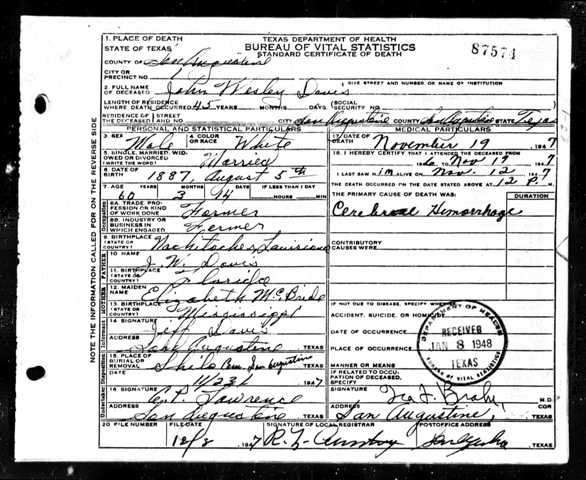 1. PLACE OF DEATH
TEXAS DEPARTMENT OF HEALTH
STATE OF TEXAS
BUREAU OF VITAL STATISTICS
87574
STANDARD CERTIFICATE OF DEATH
COUNTY OF San Augustine
CITY OR PRECINCT NO. 1
GIVE STREET AND NUMBER OR NAME OF INSTITUTION
2. FULL NAME OF DECEASED John Wesley Davis
LENGTH OF RESIDENCE WHERE DEATH OCCURRED 45 YEARS MONTHS DAYS (SOCIAL SECURITY NO.
RESIDENCE OF THE DECEASED STREET NO. CITY San Augustine COUNTY San Augustine STATE Texas
PERSONAL AND STATISTICAL PARTICULARS
MEDICAL PARTICULARS
3. SEX Male 4. COLOR OR RACE White
17. DATE OF DEATH November 19 1947
5. SINGLE, MARRIED, WIDOWED OR DIVORCED (WRITE THE WORD) Married
18. I HEREBY CERTIFY THAT I ATTENDED THE DECEASED FROM
19 to Nov 19 1947
6. DATE OF BIRTH 1887, August 5th
I LAST SAW HIM ALIVE ON Nov. 12 1947
7. AGE 60 YEARS 3 MONTHS 14 DAYS IF LESS THAN 1 DAY HOURS MIN
THE DEATH OCCURRED ON THE DATE STATED ABOVE AT 12 P. M.
8A. TRADE, PROFESSION OR KIND OF WORK DONE Farmer
THE PRIMARY CAUSE OF DEATH WAS: DURATION
Cerebral Hemorrhage
8B. INDUSTRY OR BUSINESS IN WHICH ENGAGED Farmer
9. BIRTHPLACE (STATE OR COUNTRY) Nachitoches Louisiana
CONTRIBUTORY CAUSES WERE:
10. NAME J. W. Davis
11. BIRTHPLACE (STATE OR COUNTRY) Florida
12. MAIDEN NAME Elizabeth McBride
13. BIRTHPLACE (STATE OR COUNTRY) Mississippi
IF NOT DUE TO DISEASE, SPECIFY WHETHER:
ACCIDENT, SUICIDE, OR HOMICIDE
14. SIGNATURE Jeff Davis
DATE OF OCCURRENCE
ADDRESS San Augustine TEXAS
PLACE OF OCCURRENCE
DEPARTMENT OF HEALTH
RECEIVED
JAN 8 1948
TEXAS
BUREAU OF VITAL STATISTICS
15. PLACE OF BURIAL OR REMOVAL Shilo Cem. San Augustine TEXAS
MANNER OR MEANS
11/23/ 1947
IF RELATED TO OCCUPATION OF DECEASED, SPECIFY
16. SIGNATURE C. P. Lawrence
SIGNATURE M.D.
ADDRESS San Augustine TEXAS
ADDRESS San Augustine, TEXAS
20. FILE NUMBER
FILE DATE 12/8 1947
SIGNATURE OF LOCAL REGISTRAR
POSTOFFICE ADDRESS TEXAS
NOTE THE INFORMATION CALLED FOR ON THE REVERSE SIDE
Occupation
FATHER
MOTHER
Informant